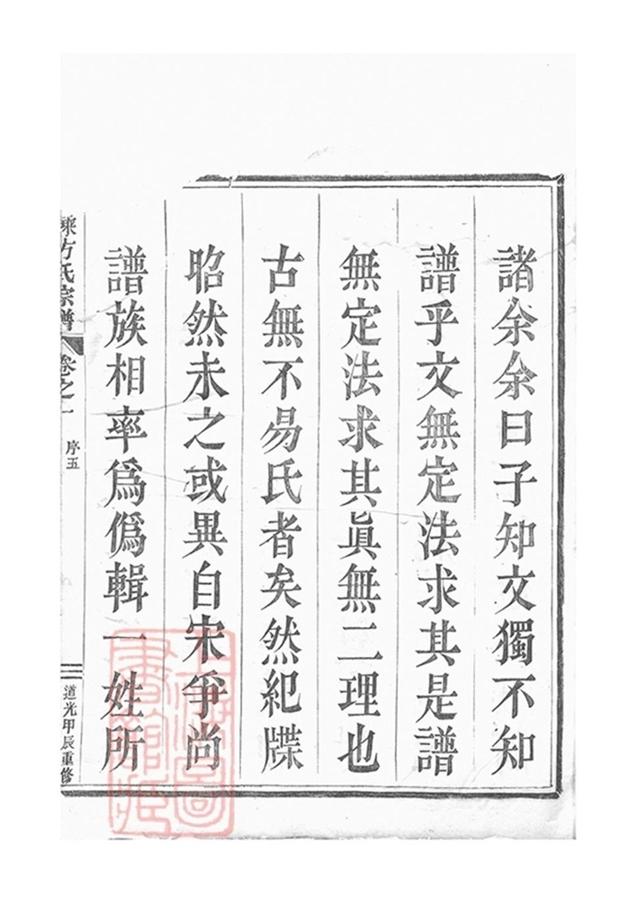 諸余余曰子知文獨不知
譜乎文無定法求其是譜
無定法求其眞無二理也
古無不易氏者矣然紀牒
昭然未之或異自宋爭尚
譜族相率爲僞輯一姓所
方氏宗譜
卷之一
序五
道光甲辰重修